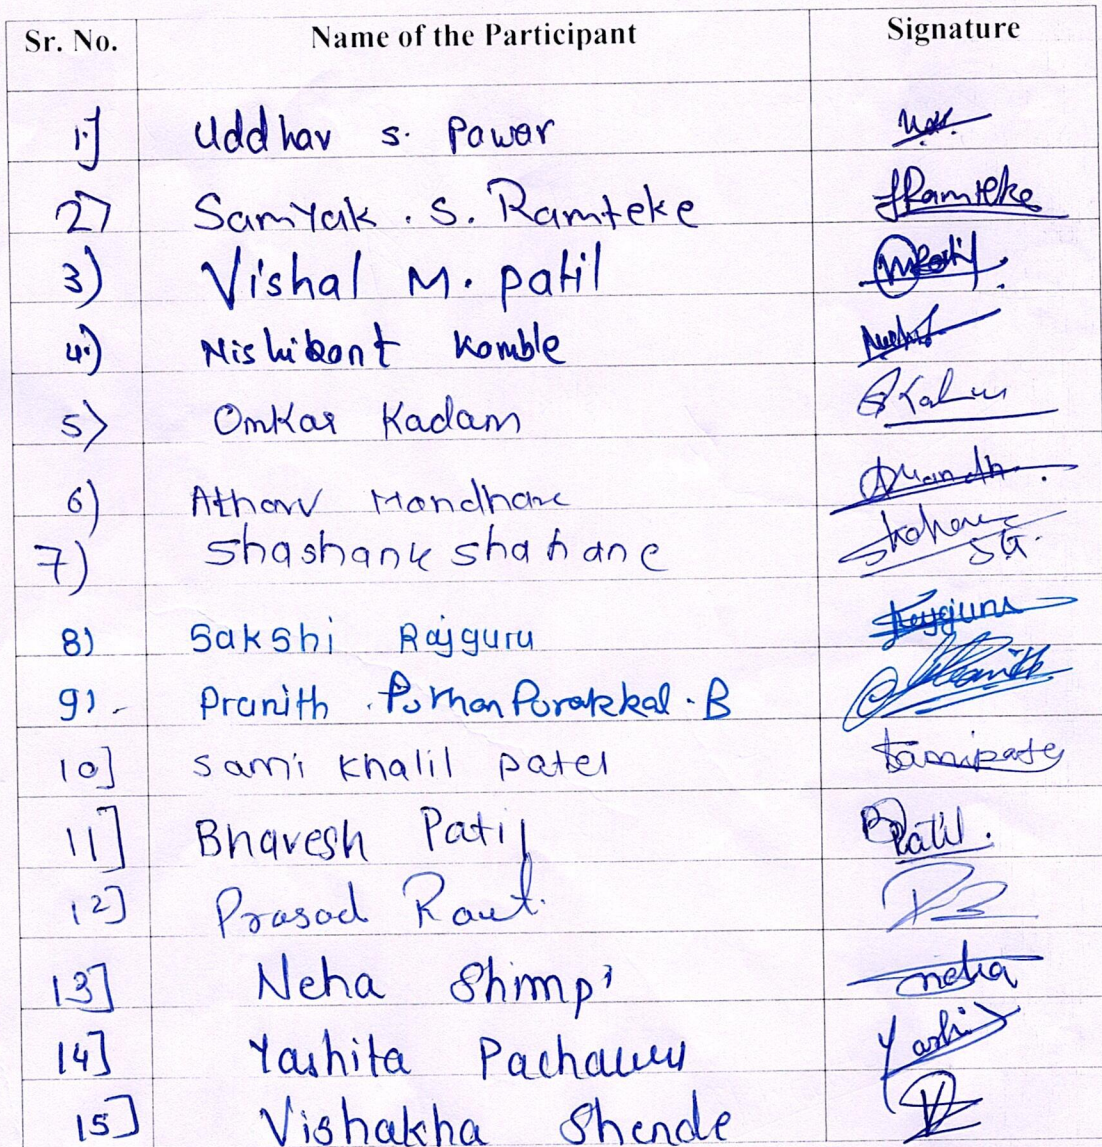 Sr. No. Name of the Participant Signature
1.] Uddhav s. Pawar
2) Samyak . S. Ramteke SRamteke
3) Vishal M. patil MPatil.
4.) Nishikant Kamble
5) Omkar Kadam
6) Atharv Mandhare
7) Shashank shahane
8) Sakshi Rajguru Rajguru
9) - Pranith . Puthan Purakkal . B
10] sami khalil patel Samipatel
11] Bhavesh Patil BPatil.
12] Prasad Raut.
13] Neha Shimpi neha
14] Yashita Yashi
15] Vishakha Shende